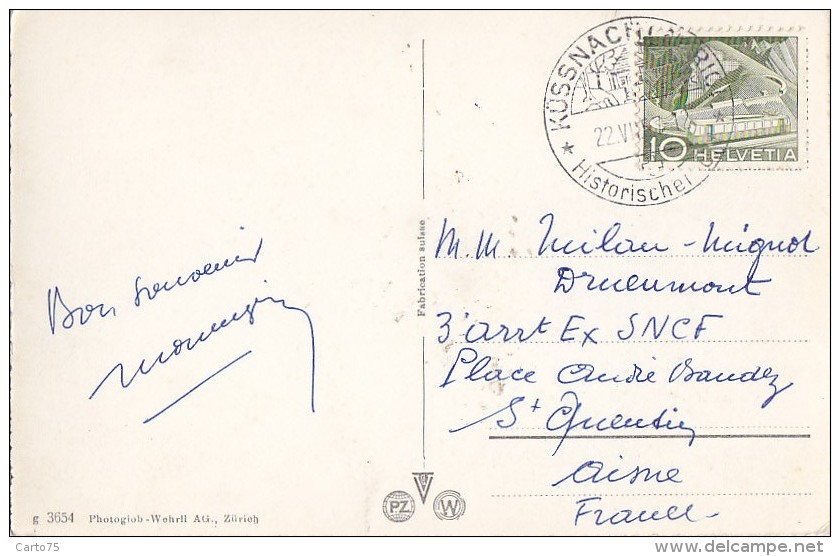 KÜSSNACHT RIGI
22.VI
Historischer
10 HELVETIA
Fabrication suisse
M.M Milan-Mignot
Drueumont
3'arrt Ex SNCF
Place André Baudez
St Quentin
Aisne
France
Bon souvenir
PZ W
g 3654 Photoglob-Wehrli AG., Zürich
Carto75
www.delcampe.net